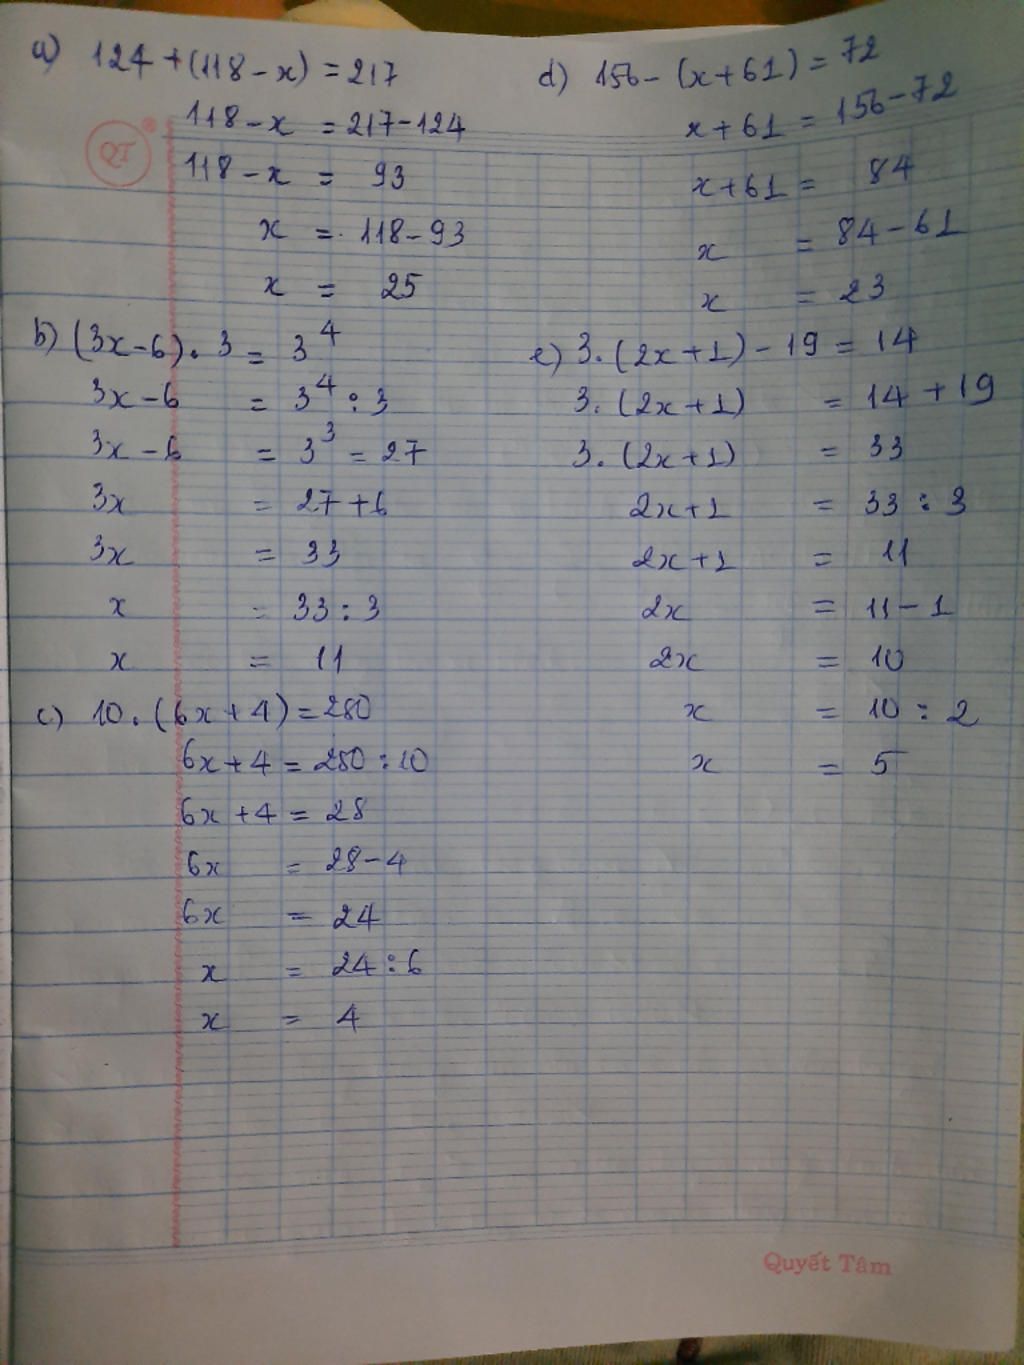 a) 124 + (118 - x) = 217
118 - x = 217 - 124
118 - x = 93
x = 118 - 93
x = 25
b) (3x - 6) . 3 = 3^4
3x - 6 = 3^4 : 3
3x - 6 = 3^3 = 27
3x = 27 + 6
3x = 33
x = 33 : 3
x = 11
c) 10 . (6x + 4) = 280
6x + 4 = 280 : 10
6x + 4 = 28
6x = 28 - 4
6x = 24
x = 24 : 6
x = 4
d) 156 - (x + 61) = 72
x + 61 = 156 - 72
x + 61 = 84
x = 84 - 61
x = 23
e) 3 . (2x + 1) - 19 = 14
3 . (2x + 1) = 14 + 19
3 . (2x + 1) = 33
2x + 1 = 33 : 3
2x + 1 = 11
2x = 11 - 1
2x = 10
x = 10 : 2
x = 5
QT
Quyết Tâm